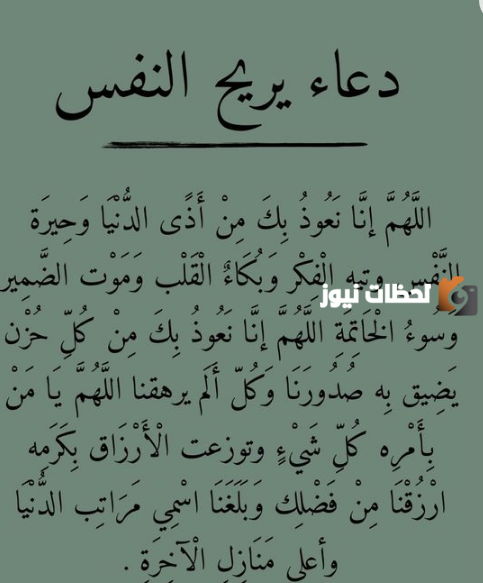 دعاء يريح النفس
اللَّهُمَّ إنَّا نَعُوذُ بِكَ مِنْ أَذًى الدُّنْيَا وَحِيرَة
النَّفْسِ وتيه الْفِكْر وَبُكَاءٌ الْقَلْب وَمَوْت الضَّمِير
لحظات نيوز
وَسُوءُ الْخَاتِمَةِ اللَّهُمَّ إنَّا نَعُوذُ بِكَ مِنْ كُلِّ حُزْن
يَضِيق بِه صُدُورَنَا وَكُلّ أَلَم يرهقنا اللَّهُمَّ يَا مَنْ
بِأَمْرِه كُلِّ شَيْءٍ وتوزعت الْأَرْزَاق بِكَرَمِه
ارْزُقْنَا مِنْ فَضْلِك وَبَلَغَنَا اسْمِي مَرَاتِب الدُّنْيَا
وأعلى مَنَازِلِ الْآخِرَةِ .